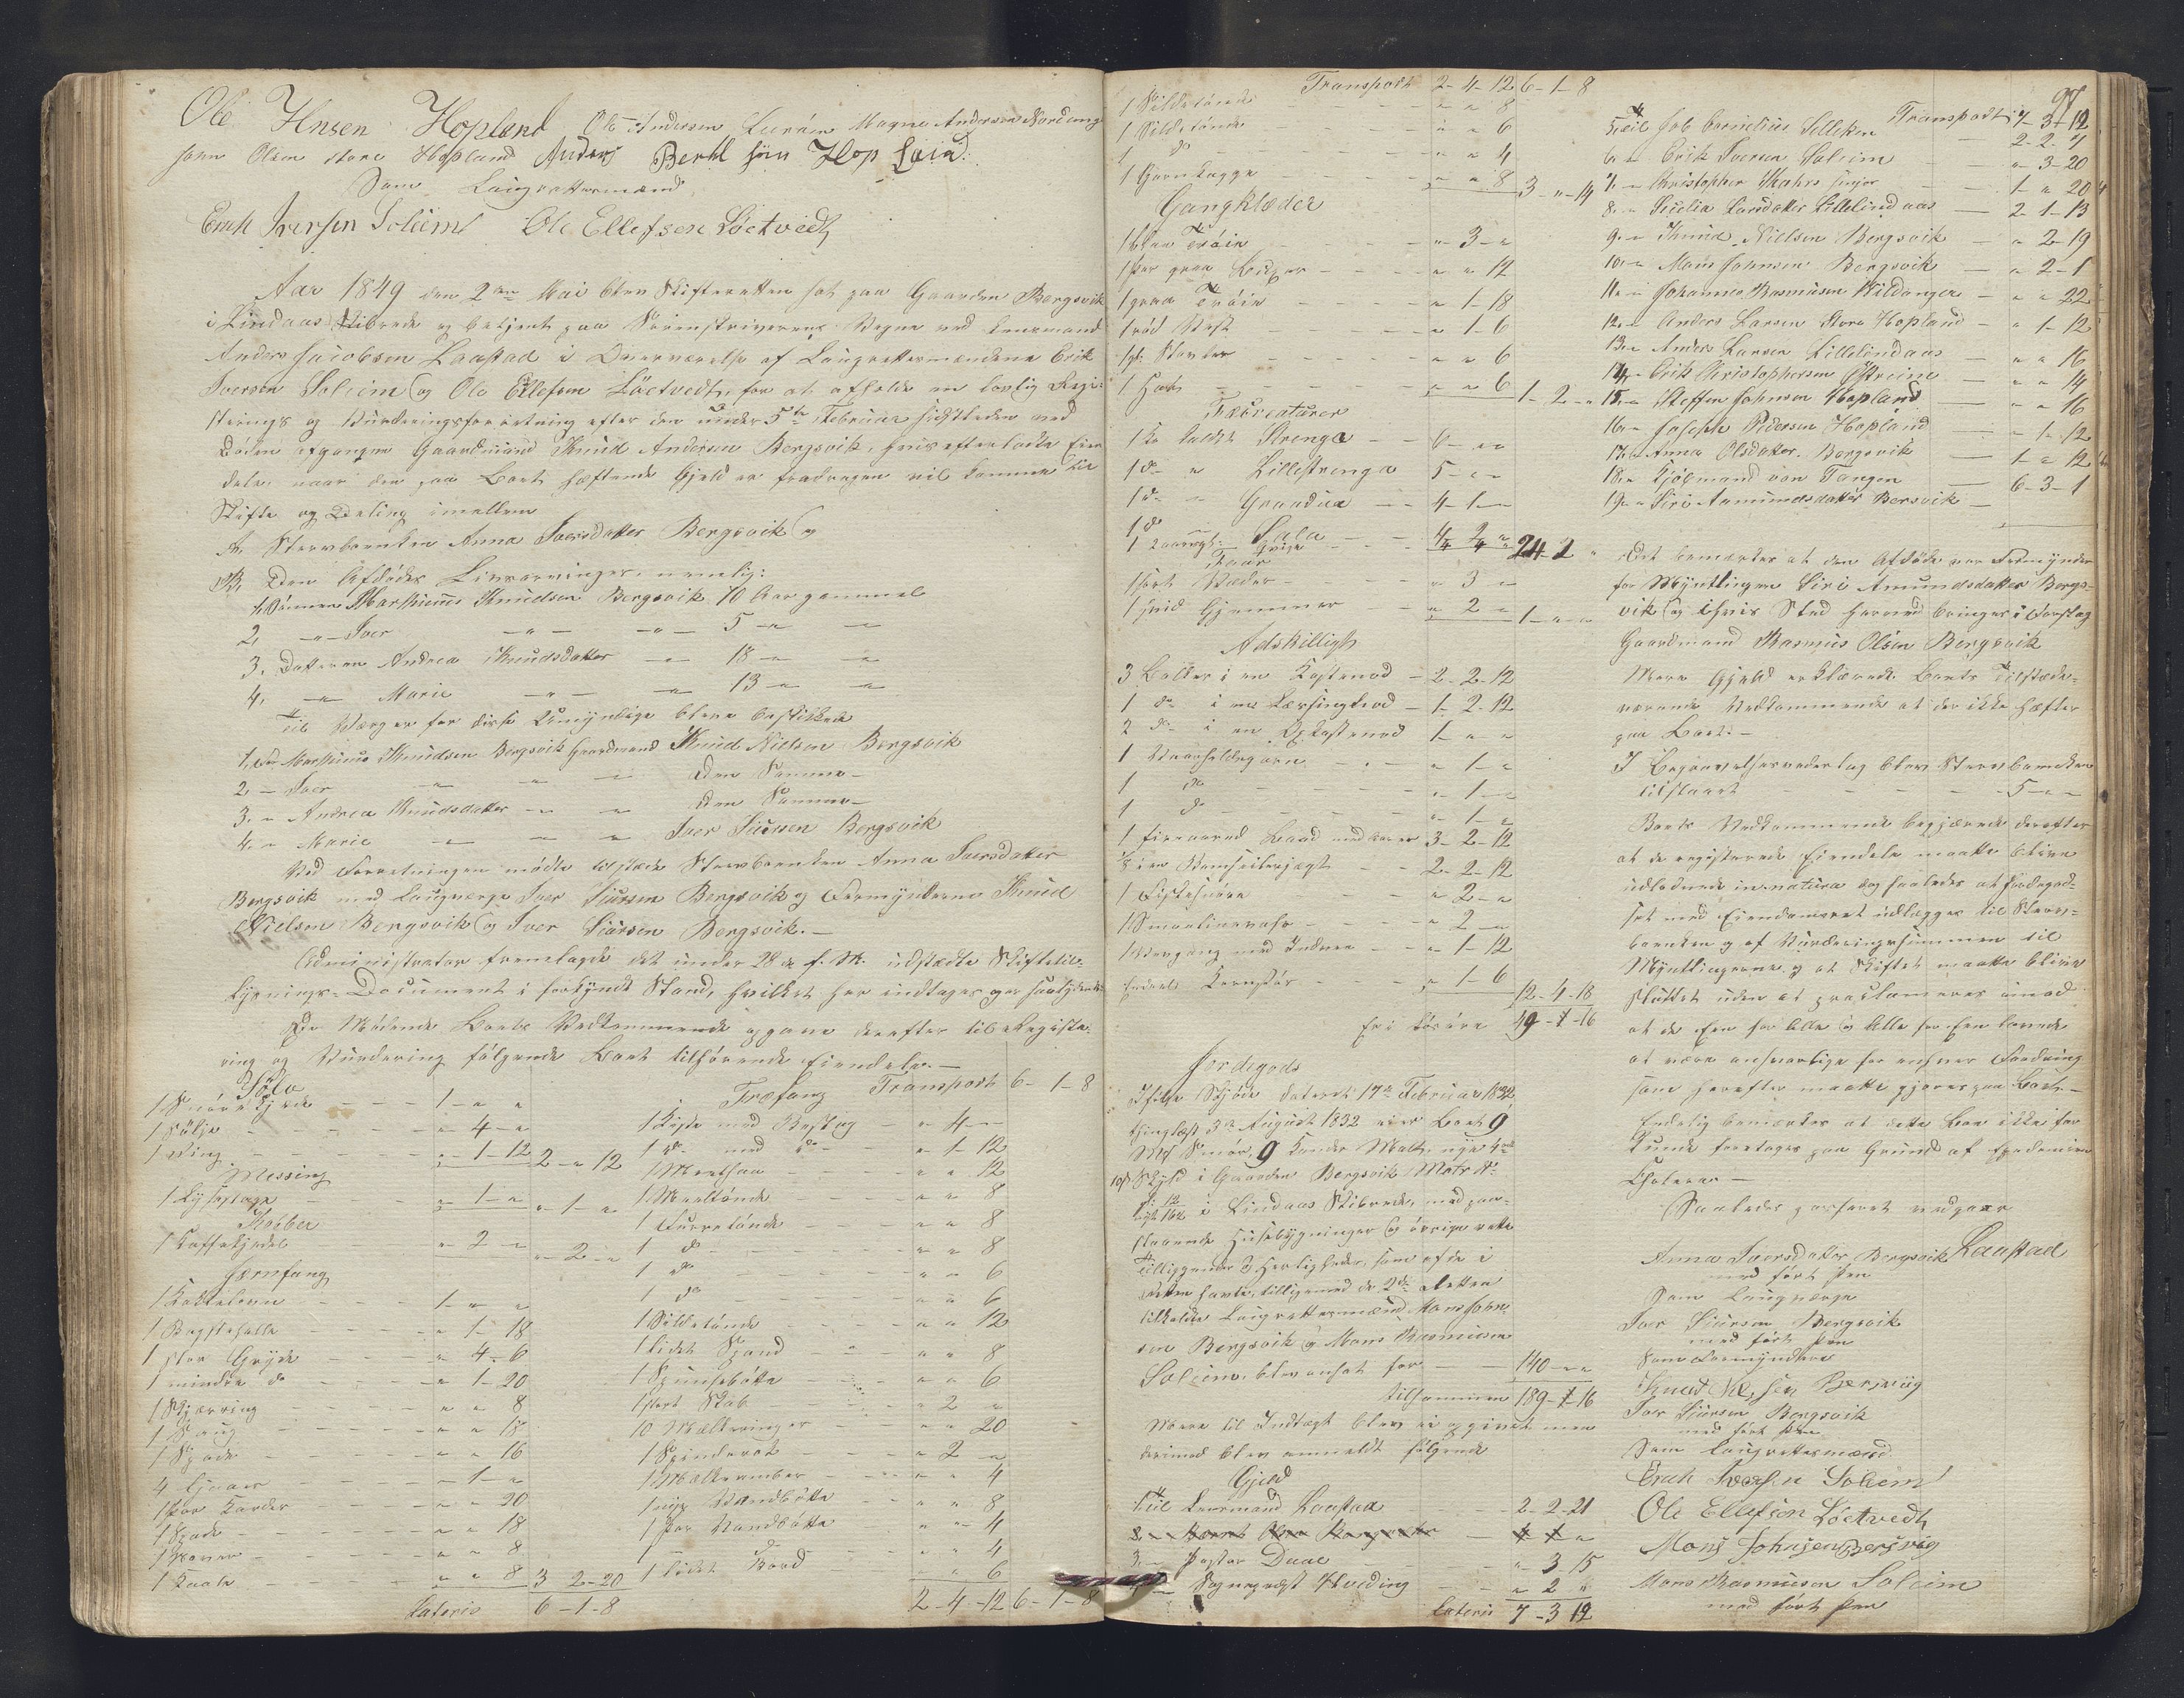 Ole Hnsen Hopland Ole Andersen Magne Andersen Nordunge
sonn Olsen store Hopland Anders Berthl sön Hopland
Som Laugrettesmænd
Erich Iversen Soleim Ole Ellefsen Löetvedt
Aar 1849 den 2den Mai blev Skifteretten sat paa Gaarden Bergsvik
i Lindaas Skibrede og betjent paa Sorenskriverens Vegne ved Lensmand
Anders Jacobsen Laastad i Overværelse af Laugrettesmændene Erik
Iversen Soleim og Ole Ellefsen Löetvedt, for at afholde en lovlig Regi-
sterings og Vurderingsforretning efter den under 5te Februar sidstleden ved
Döden afgangne Gaardmand Knud Andersen Bergsvik, hvis efterladte Eien-
dele, naar den paa Boet hæftende Gjeld er fradragen vil komme til
Skifte og Deling imellem
A, Stervboenken Anna Iversdatter Bergsvik og
B, Den Afdödes Livsarvinger, nemlig:
1, Sönnen Marthinus Knudsen Bergsvik 10 Aar gammel
2, -"- Iver -"- -"- 5 -"- -"-
3, Datteren Andrea Knudsdatter -"- 18 -"- -"-
4, -"- Marie -"- -"- 13 -"- -"-
Til Værger for disse Umyndige bleve beskikkede
1, for Marthinus Knudsen Bergsvik Gaardmand Knud Nielsen Bergsvik
2, - Iver -"- -"- -"- Den Samme -
3, - Andrea Knudsdatter -"- -"- Den Samme -
4, - Marie -"- -"- -"- Iver Siursen Bergsvik
Ved Forretningen mödte tilstæde Stervboenken Anna Iversdatter
Bergsvik med Laugværge Iver Siursen Bergsvik og Formynderne Knud
Nielsen Bergsvik og Iver Siursen Bergsvik. -
Administrator fremlagde det under 28de f. M. udstædte Skiftetil-
lysnings-Document i forkyndt Stand, hvilket her indtages saalydende
De Mödende Boets Vedkommende opgave derefter til Registe-
ring og Vurdering fölgende Boet tilhörende Eiendele. -
Sölv
1 - " "
1 Sölje " 4 - "
1 Ring " 1 - 12 2 - " 12
Messing
1 Lysestage " 1 - " " 1 - "
Kobber
1 Kaffekjedel " 2 - " " 2 - "
Jernfang
1 Kakkelovn 1 - " "
1 Bagstehelle " 1 - 18
1 stor Gryde " 4 - 6
1 mindre do " 1 - 20
1 Skjæring " " 8
1 Saug " " 18
1 Spade " " 16
4 Ljaaer " 1 - "
1 Par Karder " " 20
1 Spade " " 18
1 Naver " " 8
1 " " 8 3 2 - 20
Lateris 6 - 1 - 8
Træfang Transport 6 - 1 - 8
1 Kiste med Beslag " 4 - "
1 do med do " 1 - 12
1 " " 12
1 Meeltönde " " 8
1 Turretönde " " 8
1 do " " 8
1 do " " 6
1 do " " 6
1 Sildetönde " " 12
1 lidet Spand " " 8
1 " " 6
1 stort Skab " 2 "
10 Melkeringer " " 20
1 Spinderok " 2 "
1 Melkeamber " " 4
1 nye Vandbötte " " 8
1 Par Vandbötte " " 4
" " 4
1 lidet Bord " " 6
2 - 4 - 12 6 - 1 - 8
Transport 2 - 4 - 12 6 - 1 - 8
1 Sildetönde " " 8
1 Sildetönde " " 6
1 do " " 4
1 Garnkagge " " 8 3 - " - 14
Gangklæder
1 blaa Tröie " 3 - "
1 Par graa Buxer " " 12
1 graa Tröie " 1 - 18
1 röd Vest " 1 - 6
1 pr Stövler " " 6
1 Hat " " 6 1 - 2 - "
Kreaturer
1 Ko kaldet Strenga 6 - " "
1 do " Lillestrenga 5 - " "
1 do " Graadua 4 - 1 - "
1 do Sala 4 4 "
1 24 - 2 "
Faar
1 sort Væder " 3 "
1 hvid Gjemmer " 2 " 1 - " "
Adskilligt
3 Bolker i en Kastenod 2 - 2 - 12
1 do i en Larsingsnod 1 - 2 - 12
2 do i en Opkastenod 1 - " "
1 Vaarsildegarn " 1 - "
1 do " 1 - "
1 do " 1 - "
1 fireaaret Baad med aarer 3 - 2 - 12
1/8 i en Bomseilerjægt 2 - 2 - 12
1 Fiskesnöre " 2 - "
1 Smaalinevase " 2 "
1 Vævgang med Indreie " 1 - 12
Endeel Kornstör " 1 - 6
12 - 4 - 18
Er i Lösöre 49 - 1 - 16
Jordegods
Ifölge Skjöde dateret 17de Februar 1832
thinglæst 3de August 1832 eier Boet 9
Mrk Smör, 9 Kander Malt, nye 4ort
10 s Skyld i Gaarden Bergsvik Matr No
i Lindaas Skibrede, med paa-
staaende Huusebygninger og övrige rette
Tilliggender & Herligheder, som efter i
Retten havte, tilligemed de 2de dertil
tilkaldte Laugrettesmænd Mons John-
sen Bergsvik og Mons Rasmusen
Soleim, blev ansat for 140 - " "
tilsammen 189 - 1 - 16
Mere til Indtægt blev ei opgivet men
derimod blev anmeldt fölgende
Gjeld
1, til Lensmand Laastad 2 - 2 - 21
3, - Pastor Daae " 3 15
- Sogneprest Hvoding " 2 "
Lateris 7 - 3 12
97
Transport 7 - 3 - 12
5, til Job Cornelius Lilleken 2 - 2 - 7
6, - Erik Iversen Soleim " 3 - 20
7, - Christopher Kahrs junior 1 - " 20
8, - Sicelia Larsdatter Lillelindaas 2 - 1 - 13
9, - Knud Nielsen Bergsvik " 2 - 19
10, - Mons Johnsen Bergsvik " 2 - 1
11, - Johannes Rasmusen Vildanger " " 22
12, - Anders Larsen Store Hopland " 1 - 12
13, - Anders Larsen Lillelindaas " " 16
14, - Erik Christophersen Östreim " " 14
15, - Steffen Johnsen Hopland " " 16
16, - Joseph Pedersen Hopland " 1 - 12
17, - Anna Olsdatter Bergsvik 1 - " 12
18, - Kjöbmand von Tangen 6 - 3 - 1
19, - Siri Amundsdatter Bersvik -
Det bemærkes at den Afdöde var Formynder
for Myndlingen Siri Amundsdatter Bergs-
vik og i hvis Sted herved bringes i Forslag
Gaardmand Rasmus Olsen Bergsvik
Mere Gjeld erklærede Boets Tilstæde-
værende Vedkommende at der ikke hæfter
paa Boet. -
I Begravelsesvederlag blev Stervboenken
tilstaaet 5 - " "
Boets Vedkommende begjærede derefter
at de registerede Eiendele maatte blive
udlodnede in natura dog saaledes at Jordegod-
set med Eiendommeret udlægges til Sterv-
boenken og af Vurderingssummen til
Myndlingerne, og at Skiftet maatte blive
sluttet uden at proclameres imod
at de Een for Alle og Alle for Een lovede
at være ansvarlige for enhver Fordring
som herefter maatte gjöres paa Boet. -
Endelig bemærkes at dette Boe ikke för
kunde foretages paa Grund af Epedemien
Cholera -
Saaledes passeret vidner
Laastad
Anna Iversdatter Bergsvik
med fört Pen
Som Laugværge
Iver Siursen Bergsvik
med fört Pen
Som Formyndere
Knud Nielsen Bersvig
Iver Siursen Bergsvik
med fört Pen
Som Laugrettesmænd
Erich Iversen Soleim
Ole Ellefsen Löetvedt
Mons Johnsen Bersvig
Mons Rasmusen Soleim
med fört Pen